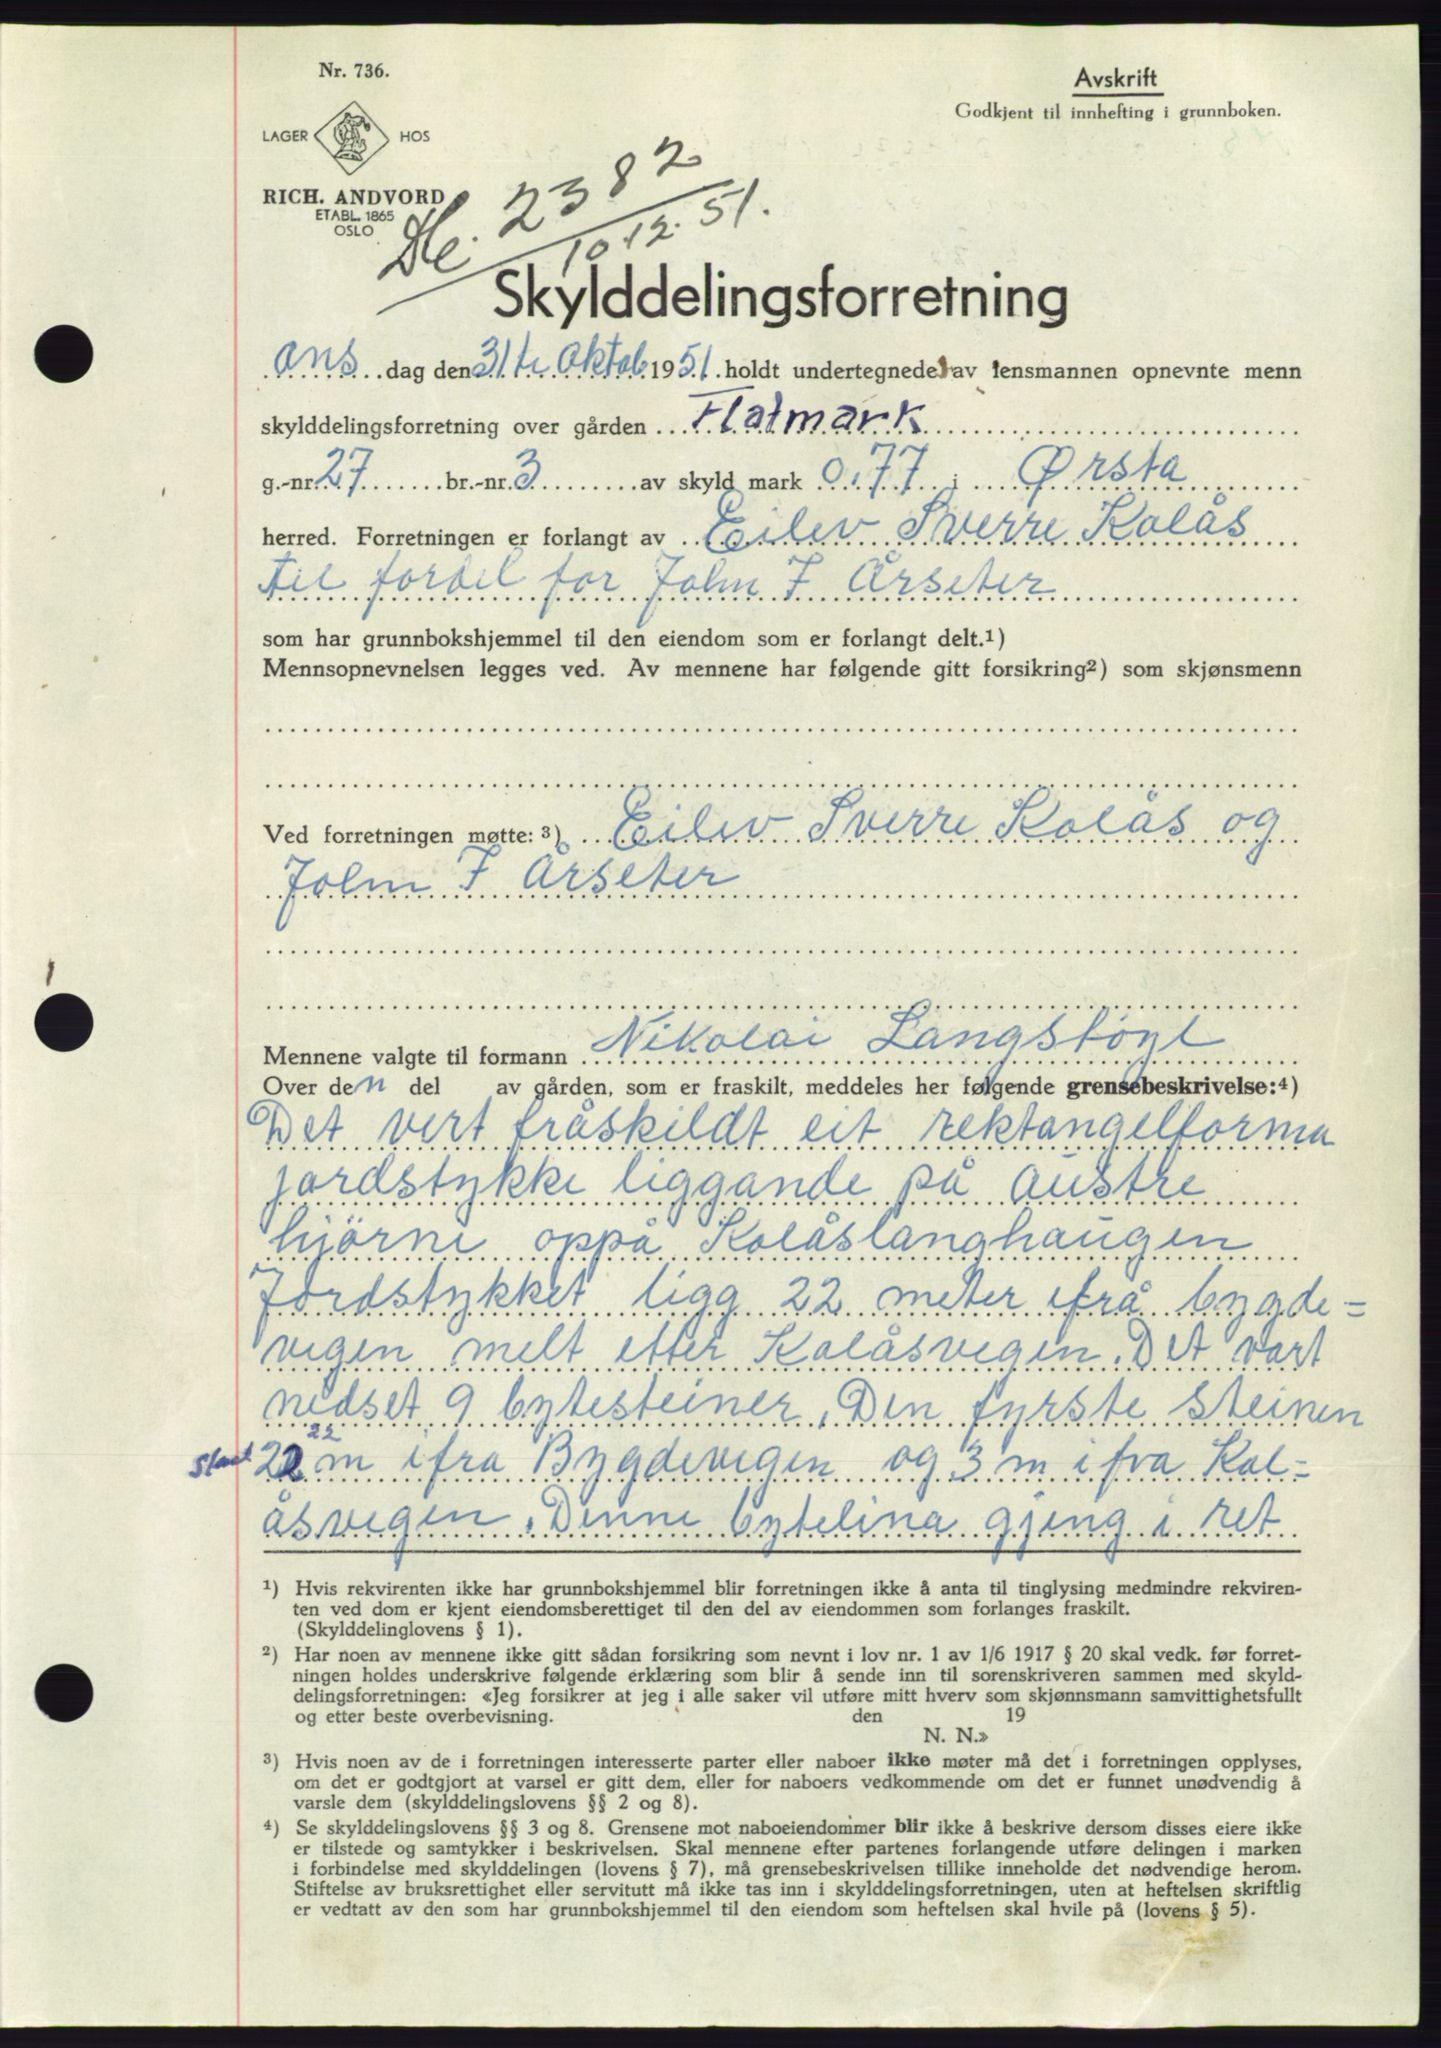 Nr. 736.
Avskrift
Godkjent til innhefting i grunnboken.
LAGER HOS
RICH. ANDVORD
ETABL. 1865
OSLO
2382
10.12.51.
Skylddelingsforretning
ons dag den 31te Oktob 1951 holdt undertegnede av lensmannen opnevnte menn
skylddelingsforretning over gården Flatmark
g.-nr. 27 br.-nr. 3 av skyld mark 0,77 i Ørsta
herred. Forretningen er forlangt av Eilev Sverre Kolås
til fordel for John F Årseter
som har grunnbokshjemmel til den eiendom som er forlangt delt.¹)
Mennsopnevnelsen legges ved. Av mennene har følgende gitt forsikring²) som skjønsmenn
Ved forretningen møtte: ³) Eilev Sverre Kolås og
John F Årseter
Mennene valgte til formann Nikolai Langstøyl
Over den del av gården, som er fraskilt, meddeles her følgende grensebeskrivelse:⁴)
Det vert fråskildt eit rektangelforma
jordstykke liggande på austre
hjörne oppå Kolåslanghaugen
Jordstykket ligg 22 meter ifrå bygde=
vegen melt etter Kolåsvegen. Det vart
nedset 9 bytesteiner. Den fyrste steinen
22
22 m ifra Bygdevegen og 3 m ifra Kol=
åsvegen. Denne bytelina gjeng i ret
¹) Hvis rekvirenten ikke har grunnbokshjemmel blir forretningen ikke å anta til tinglysing medmindre rekviren-
ten ved dom er kjent eiendomsberettiget til den del av eiendommen som forlanges fraskilt.
(Skylddelinglovens § 1).
²) Har noen av mennene ikke gitt sådan forsikring som nevnt i lov nr. 1 av 1/6 1917 § 20 skal vedk. før forret-
ningen holdes underskrive følgende erklæring som blir å sende inn til sorenskriveren sammen med skyld-
delingsforretningen: «Jeg forsikrer at jeg i alle saker vil utføre mitt hverv som skjønnsmann samvittighetsfullt
og etter beste overbevisning. den 19
N. N.»
³) Hvis noen av de i forretningen interesserte parter eller naboer ikke møter må det i forretningen opplyses,
om det er godtgjort at varsel er gitt dem, eller for naboers vedkommende om det er funnet unødvendig å
varsle dem (skylddelingslovens §§ 2 og 8).
⁴) Se skylddelingslovens §§ 3 og 8. Grensene mot naboeiendommer blir ikke å beskrive dersom disses eiere ikke
er tilstede og samtykker i beskrivelsen. Skal mennene efter partenes forlangende utføre delingen i marken
i forbindelse med skylddelingen (lovens § 7), må grensebeskrivelsen tillike inneholde det nødvendige herom.
Stiftelse av bruksrettighet eller servitutt må ikke tas inn i skylddelingsforretningen, uten at heftelsen skriftlig
er vedtatt av den som har grunnbokshjemmel til den eiendom som heftelsen skal hvile på (lovens § 5).